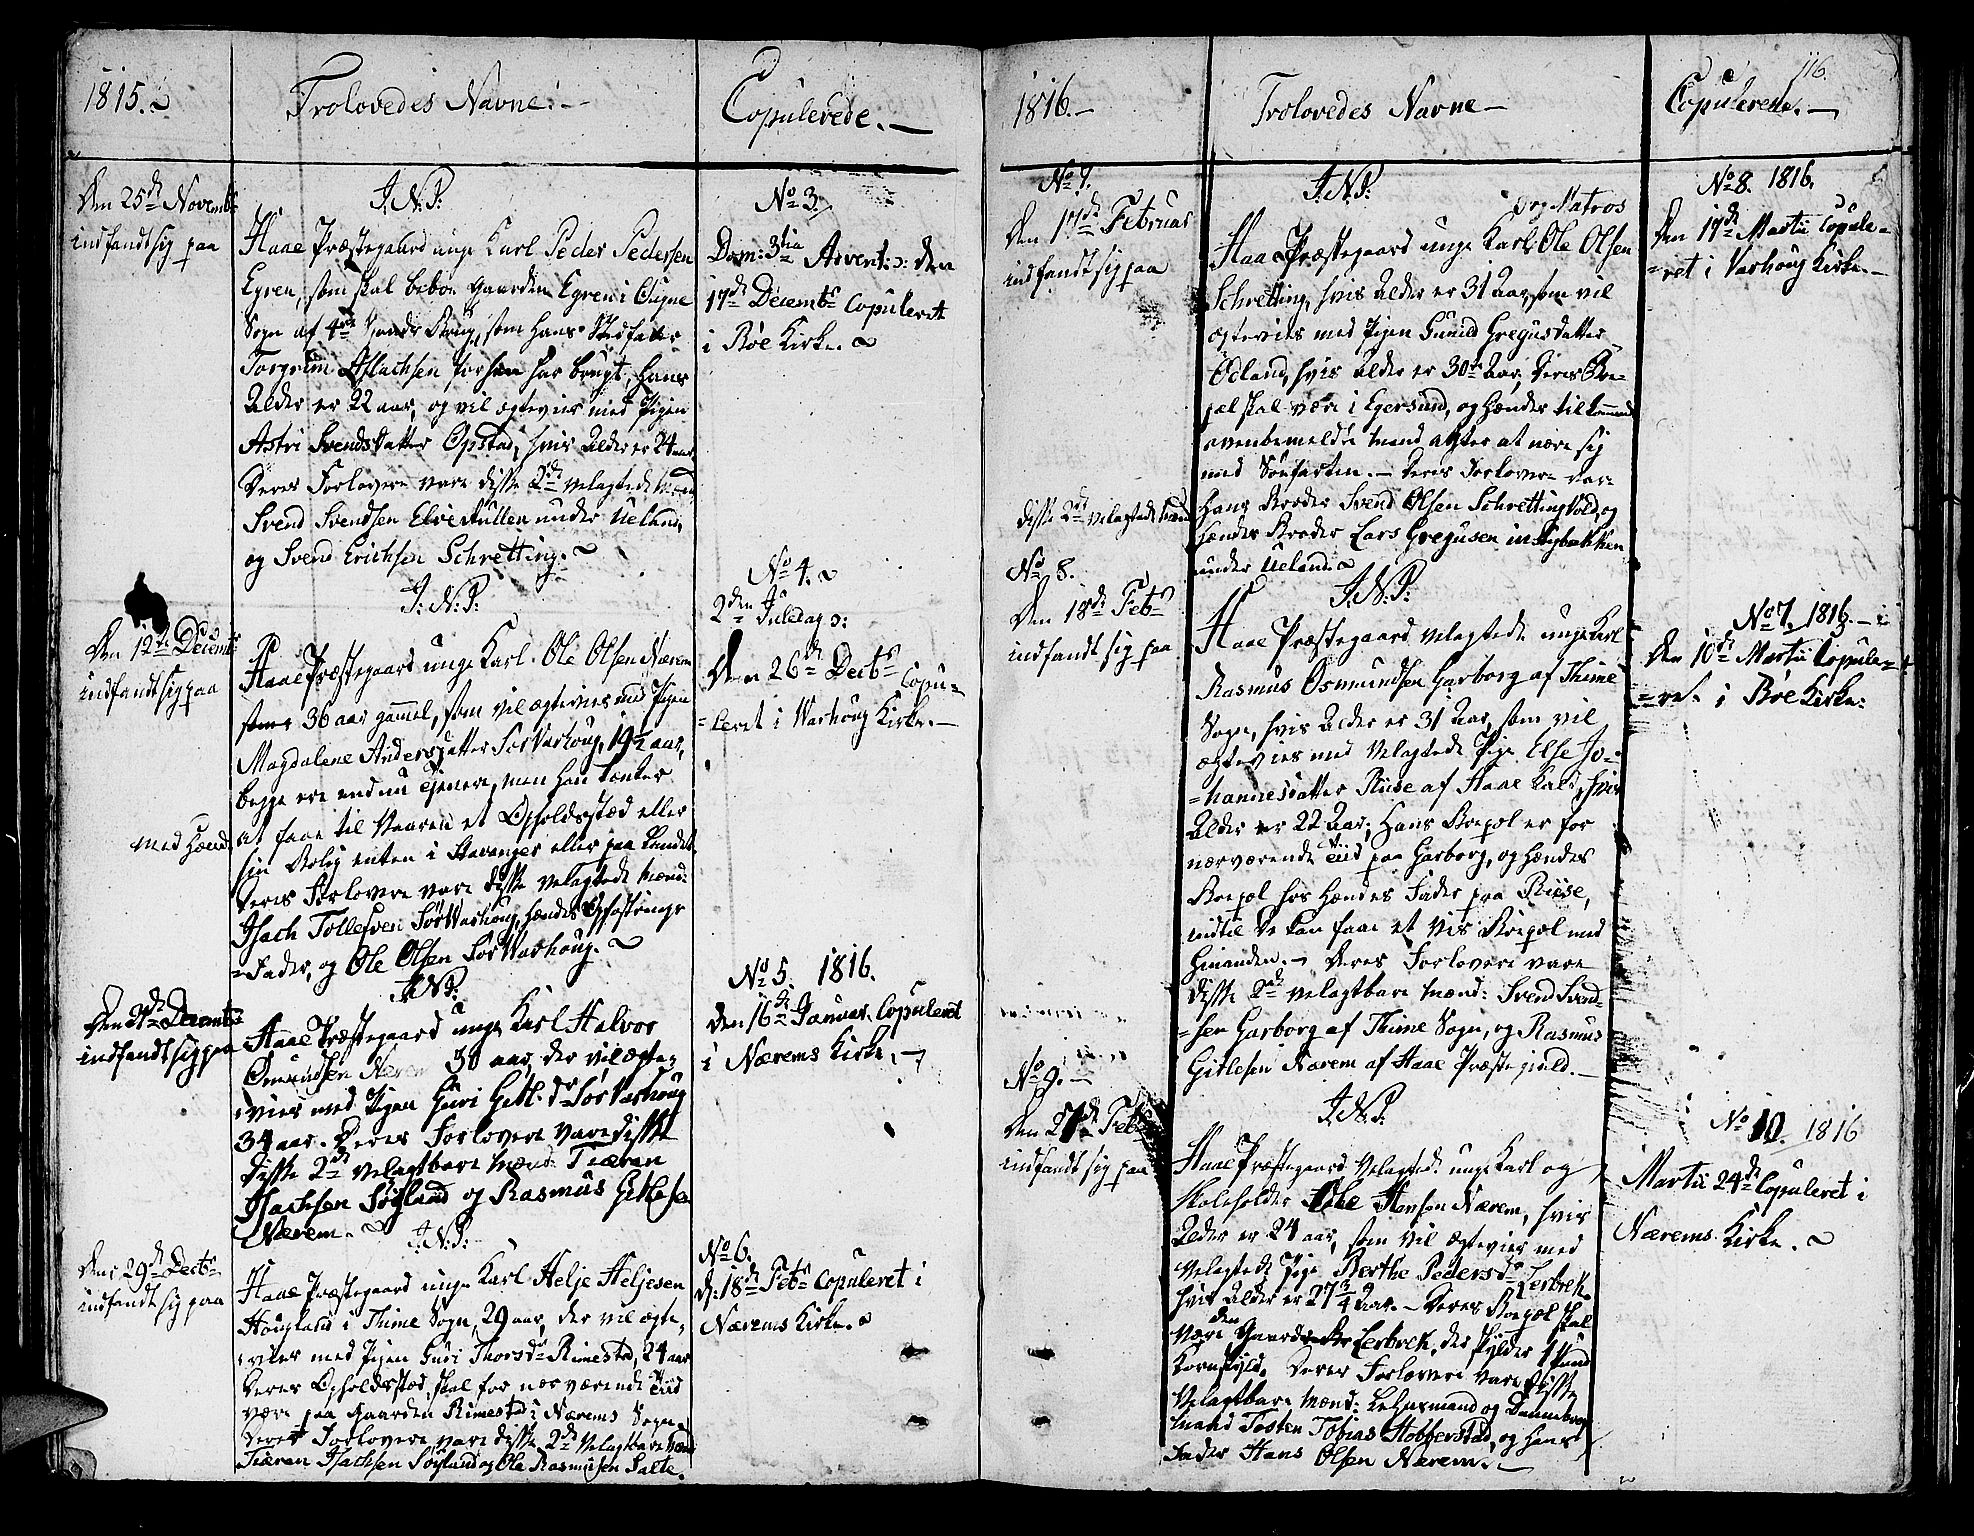 1815.
Trolovedes Navne:
Copulerede.
Den 25de Novembr
indfandt sig paa
J. N. P.
Haae Præstegaard unge Karl Peder Pedersen
Egren, som skal beboe Gaarden Egren i Ougne
Sogn af
Torgrim Aslachsen før ham har brugt, hans
Alder er 22 aar, og vil ægtevies med Pigen
Astri Svendsdatter Opstad, hvis Alder er 24 aar
Deres Forlovere vare disse 2de velagtede Mænd
Svend Svendsen Elvestullen under Ueland,
og Svend Erichsen Schretting.
No 3.
Dom: 3tia Advent: ɔ: den
17de Decembr Copuleret
i Bøe Kirke.
Den 12te Decembr
indfandt sig paa
J. N. P.
Haae Præstegaard unge Karl Ole Olsen Nærem
36 aar gammel, som vil ægtevies med Pigen
Magdalene Andersdatter Sør Varhoug, 19½ aar,
begge ere endnu Tjenere, men han tænker
med hende
at faae til Vaaren et Opholdsstæd eller
sin Bolig enten i Stavanger eller paa Landet.
Deres Forlovere vare disse velagtede Mænd:
Isach Tollefsen Sør Warhoug, hendes Opfostrings
=Fader, og Ole Olsen Sør Warhoug.
No 4.
2den Juledag ɔ:
Den 26de Decbr Copu=
=leret i Warhoug Kirke.
Den 21de Decembr
indfandt sig paa
J. N. P.
Haae Præstegaard unge Karl Halvor
Omundsen Nærem 30 aar, der vil ægte=
=vies med Pigen Guri Gitl.dr Sør Varhoug
34 aar. Deres Forlovere vare disse
disse 2de velagtbare Mænd: Tiæran
Isachsen Søyland og Rasmus Gitlesen
Nærem.
No 5. 1816.
Den 16de Januar Copuleret
i Nærems Kirke.
Den 29de Decbr
indfandt sig paa
J. N. P.
Haae Præstegaard unge Karl Helje Heljesen
Haugland i Thime Sogn, 29 aar, der vil ægte=
=vies med Pigen Guri Thorsdr Rimestad, 24 aar
Deres Opholdsstæd skal for nærværende Tiid
være paa Gaarden Rimestad i Nærems Sogn.
Deres Forlovere vare disse 2de velagtbare Mænd
Tiæran Isachsen Søyland og Ole Rasmusen Salte.
No 6.
d: 18de Febr Copuleret i
Nærems Kirke.
1816.
Trolovedes Navne
Copulerede.
116.
No 7.
Den 17de Februar
indfandt sig paa
J. N. P.
og Matros
Haae Præstegaard unge Karl Ole Olsen
Schretting, hvis Alder er 31 Aar, som vil
ægtevies med Pigen Gunild Gregusdatter
Ødland, hvis Alder er 30te Aar, Deres Boe=
pæl skal være i Egersund, og hendes tilkommende
ovenbemeldte Mand agter at nære sig
med Søefarten. Deres Forlovere var
disse 2de velagtede Mænd
hans Broder Svend Olsen Schrettingvold, og
hendes Broder Lars Gregusen
under Ueland.
No 8. 1816.
Den 17de Martii Copule=
=ret i Varhoug Kirke.
No 8.
Den 18de Febr
indfandt sig paa
J. N. P.
Haae Præstegaard velagtede unge Karl
Rasmus Osmundsen Garborg af Thime
Sogn, hvis Alder er 31 Aar, som vil
ægtevies med velagtede Pige Else Jo=
=hannesdatter Riise af Haae Kald, hvis
Alder er 22 Aar; Hans Boepæl er for
nærværende Tiid paa Garborg, og hendes
Boepæl hos hendes Fader paa Riise,
indtil de kan faae et vis Boepæl med
hinanden. Deres Forlovere vare
disse 2de velagtbare Mænd: Svend Svend=
=sen Garborg af Thime Sogn, og Rasmus
Gitlesen Nærem af Haae Præstegield.
No 7. 1816.
Den 10de Martii Copule=
=ret i Bøe Kirke.
No 9.
Den 27de Febr
indfandt sig paa
J. N. P.
Haae Præstegaard velagtede unge Karl og
Skoleholder Hansen Nærem, hvis
Alder er 24 aar, som vil ægtevies med
velagtede Pige Berthe Pedersdr Lerbrek
hvis Alder er 27¾ Aar. Deres Boepæl skal
være den Gaard Lerbrek, der skylder 1 Pund
Kornskyld. Deres Forlovere vare disse
velagtbare Mænd: Lehnsmand og Dannebrogs
mand Tosten Tobias Hobberstad, og hans
Fader Hans Olsen Nærem.
No 10. 1816
Martii 24de Copuleret i
Nærems Kirke.